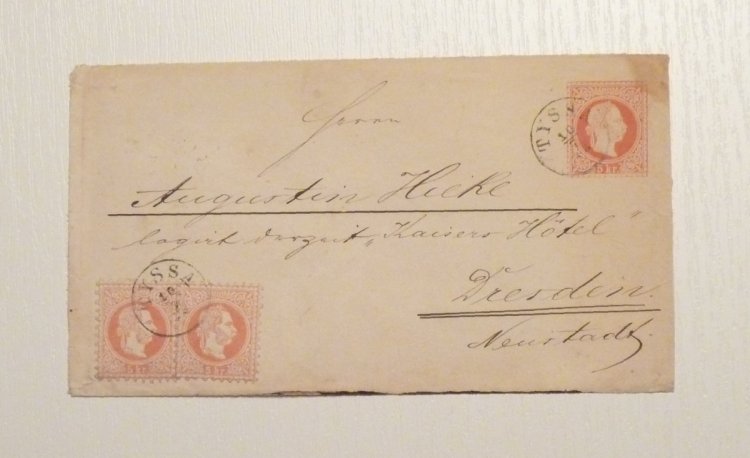 Herrn
Augustin Hieke
logirt derzeit „Kaisers Hôtel"
Dresden.
Neustadt.
TYSSA
5 kr.
TYSSA
5 kr. 5 kr.